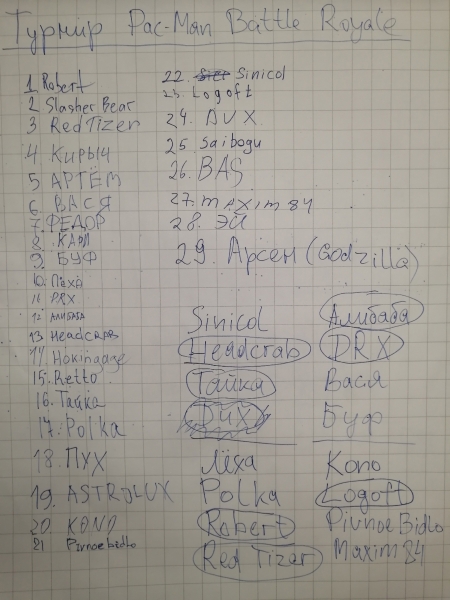 Турнир Pac-Man Battle Royale
1 Robert
2 Slasher Bear
3 Red Tizer
4. Кирыч
5 АРТЁМ
6. ВАСЯ
7. ФЕДОР
8. КАРЛ
9. БУФ
10. Лёха
11 DRX
12. АЛИБАБА
13 Headcrab
14. Hokingage
15. Retto
16. Тайка
17. Polka
18. ПУХ
19. ASTROLUX
20. KONO
21 Pivnoebidlo
22. Sinicol
23. Logoft
24. DUX
25 Saibogu
26. BAS
27. maxim 84
28. ЭЙ
29. Арсен (Godzilla)
Sinicol
Headcrab
Тайка
DUX
Лёха
Polka
Robert
Red Tizer
Алибаба
DRX
Вася
Буф
Kono
Logoft
Pivnoe Bidlo
Maxim 84